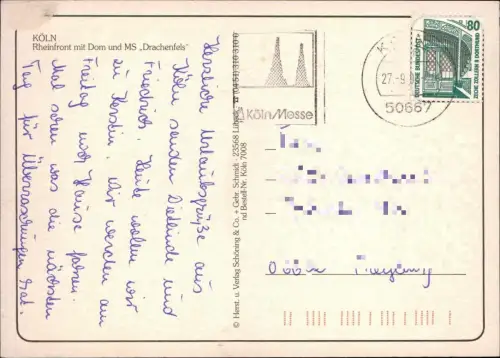 KÖLN
Rheinfront mit Dom und MS „Drachenfels"
Herzliche Urlaubsgrüße aus
Köln senden Dietlinde und
Friedrich. Heute wollen wir
zu Kerstin. Wir werden am
Freitag nach Hause fahren.
Mal sehen was die nächsten
Tag für Überraschungen hat.
© Herst. u. Verlag Schöning & Co. + Gebr. Schmidt · 23568 Lübeck
nd Bestell-Nr. Köln 7008
KölnMesse
27.-9.
50667
80
DEUTSCHE BUNDESPOST
ZECHE ZOLLERN II DORTMUND